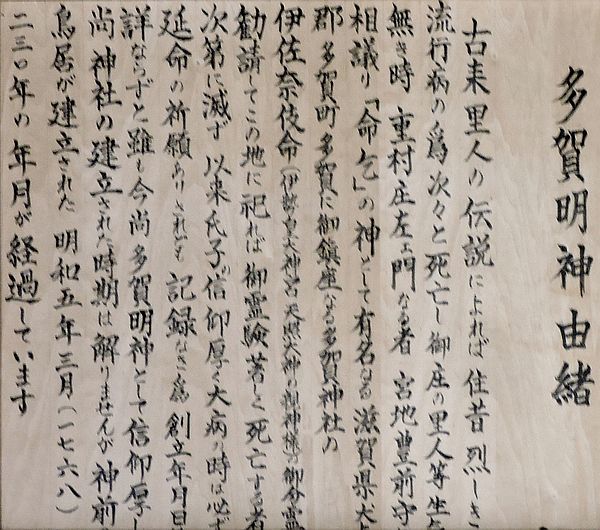 多賀明神由緒
古来里人の伝説によれば 往昔 烈しき
流行病の為次々と死亡し 御庄の里人等生
無き時 重村庄左ェ門なる者 宮地豊前守
相議り「命乞」の神として有名なる 滋賀県犬
郡多賀町多賀に御鎮座なる多賀神社の
伊佐奈伎命(伊勢皇大神宮天照大神の親神様)の御分霊
勧請してこの地に祀れば 御霊験著しく 死亡する者
次第に減ず 以来氏子の信仰厚く大病の時は必ず
延命の祈願ありされども 記録なき為 創立年月日
詳ならずと雖も今尚多賀明神として信仰厚し
尚神社の建立された時期は解りませんが 神前
鳥居が建立された 明和五年三月(一七六八)
二三〇年の年月が経過しています